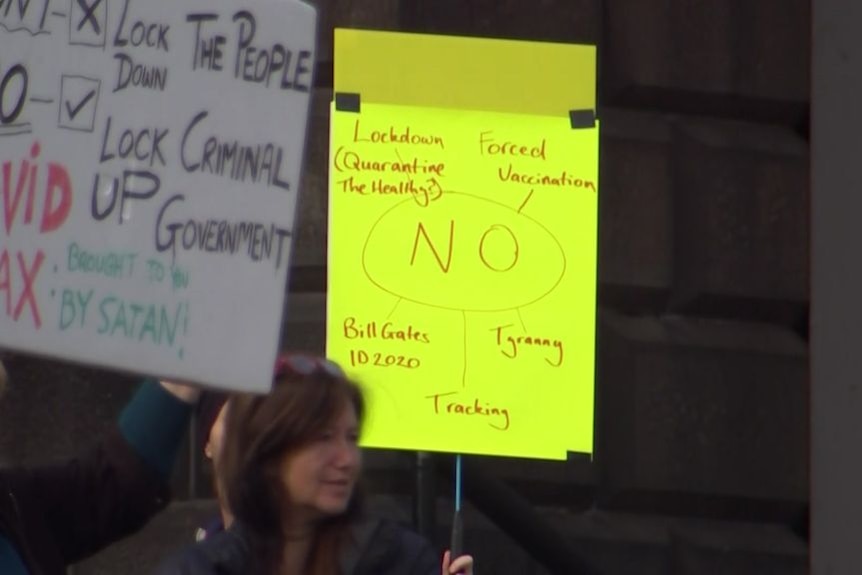 LOCK THE PEOPLE
DOWN
LOCK CRIMINAL
UP GOVERNMENT
BROUGHT TO YOU
BY SATAN!
Lockdown
(Quarantine
The Healthy?)
Forced
Vaccination
NO
Bill Gates
ID2020
Tyranny
Tracking